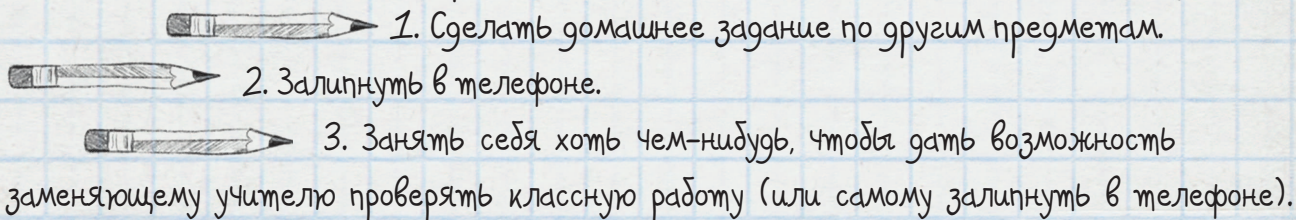 1. Сделать домашнее задание по другим предметам.
2. Залипнуть в телефоне.
3. Занять себя хоть чем-нибудь, чтобы дать возможность
заменяющему учителю проверять классную работу (или самому залипнуть в телефоне).